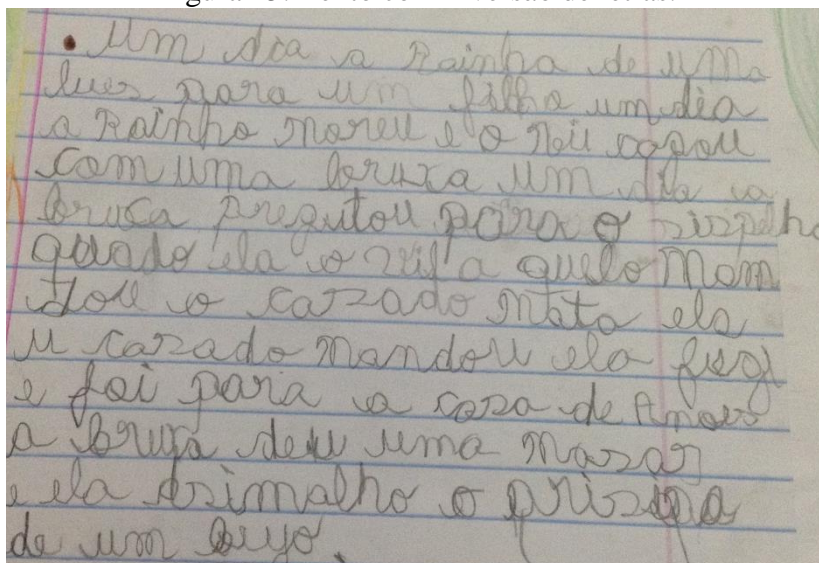 . Um dia a Rainha de uma
lues para um filho um dia
a Rainha moreu e o reii casou
com uma bruxa um dia a
bruca pregutou para o
quado ela o a quelo mom
dou o cazado mata ela
u cazado mandou ela fugi
e foi para a coza de Anoes
a bruxa deu uma mazar
e ela o
de um